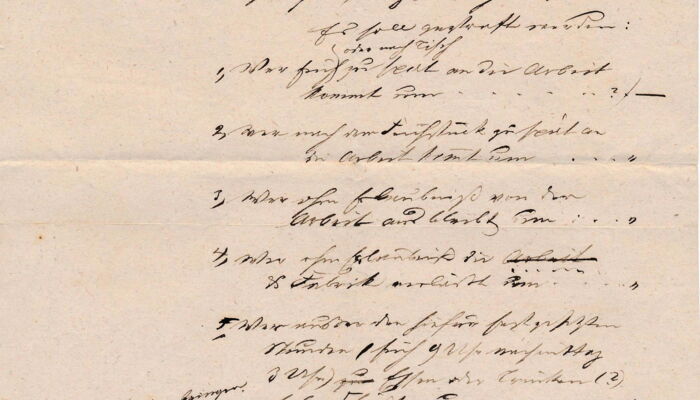 Es soll gestraft werden:
oder nach Tisch
1, Wer früh zu spät an die Arbeit
kommt um . . . . . . ?) —
2, wer nach dem Frühstück zu spät an
die Arbeit kommt um . . . . "
3, Wer ohne Erlaubniß von der
Arbeit aus bleibt um . . . "
4, Wer ohne Erlaubniß die Arbeit
d Fabrik verläßt um . . . . "
5, Wer außer den hiefür festgesetzten
Stunden (früh 9 Uhr nachmittag
3 Uhr) zu Essen oder Trinken (?)